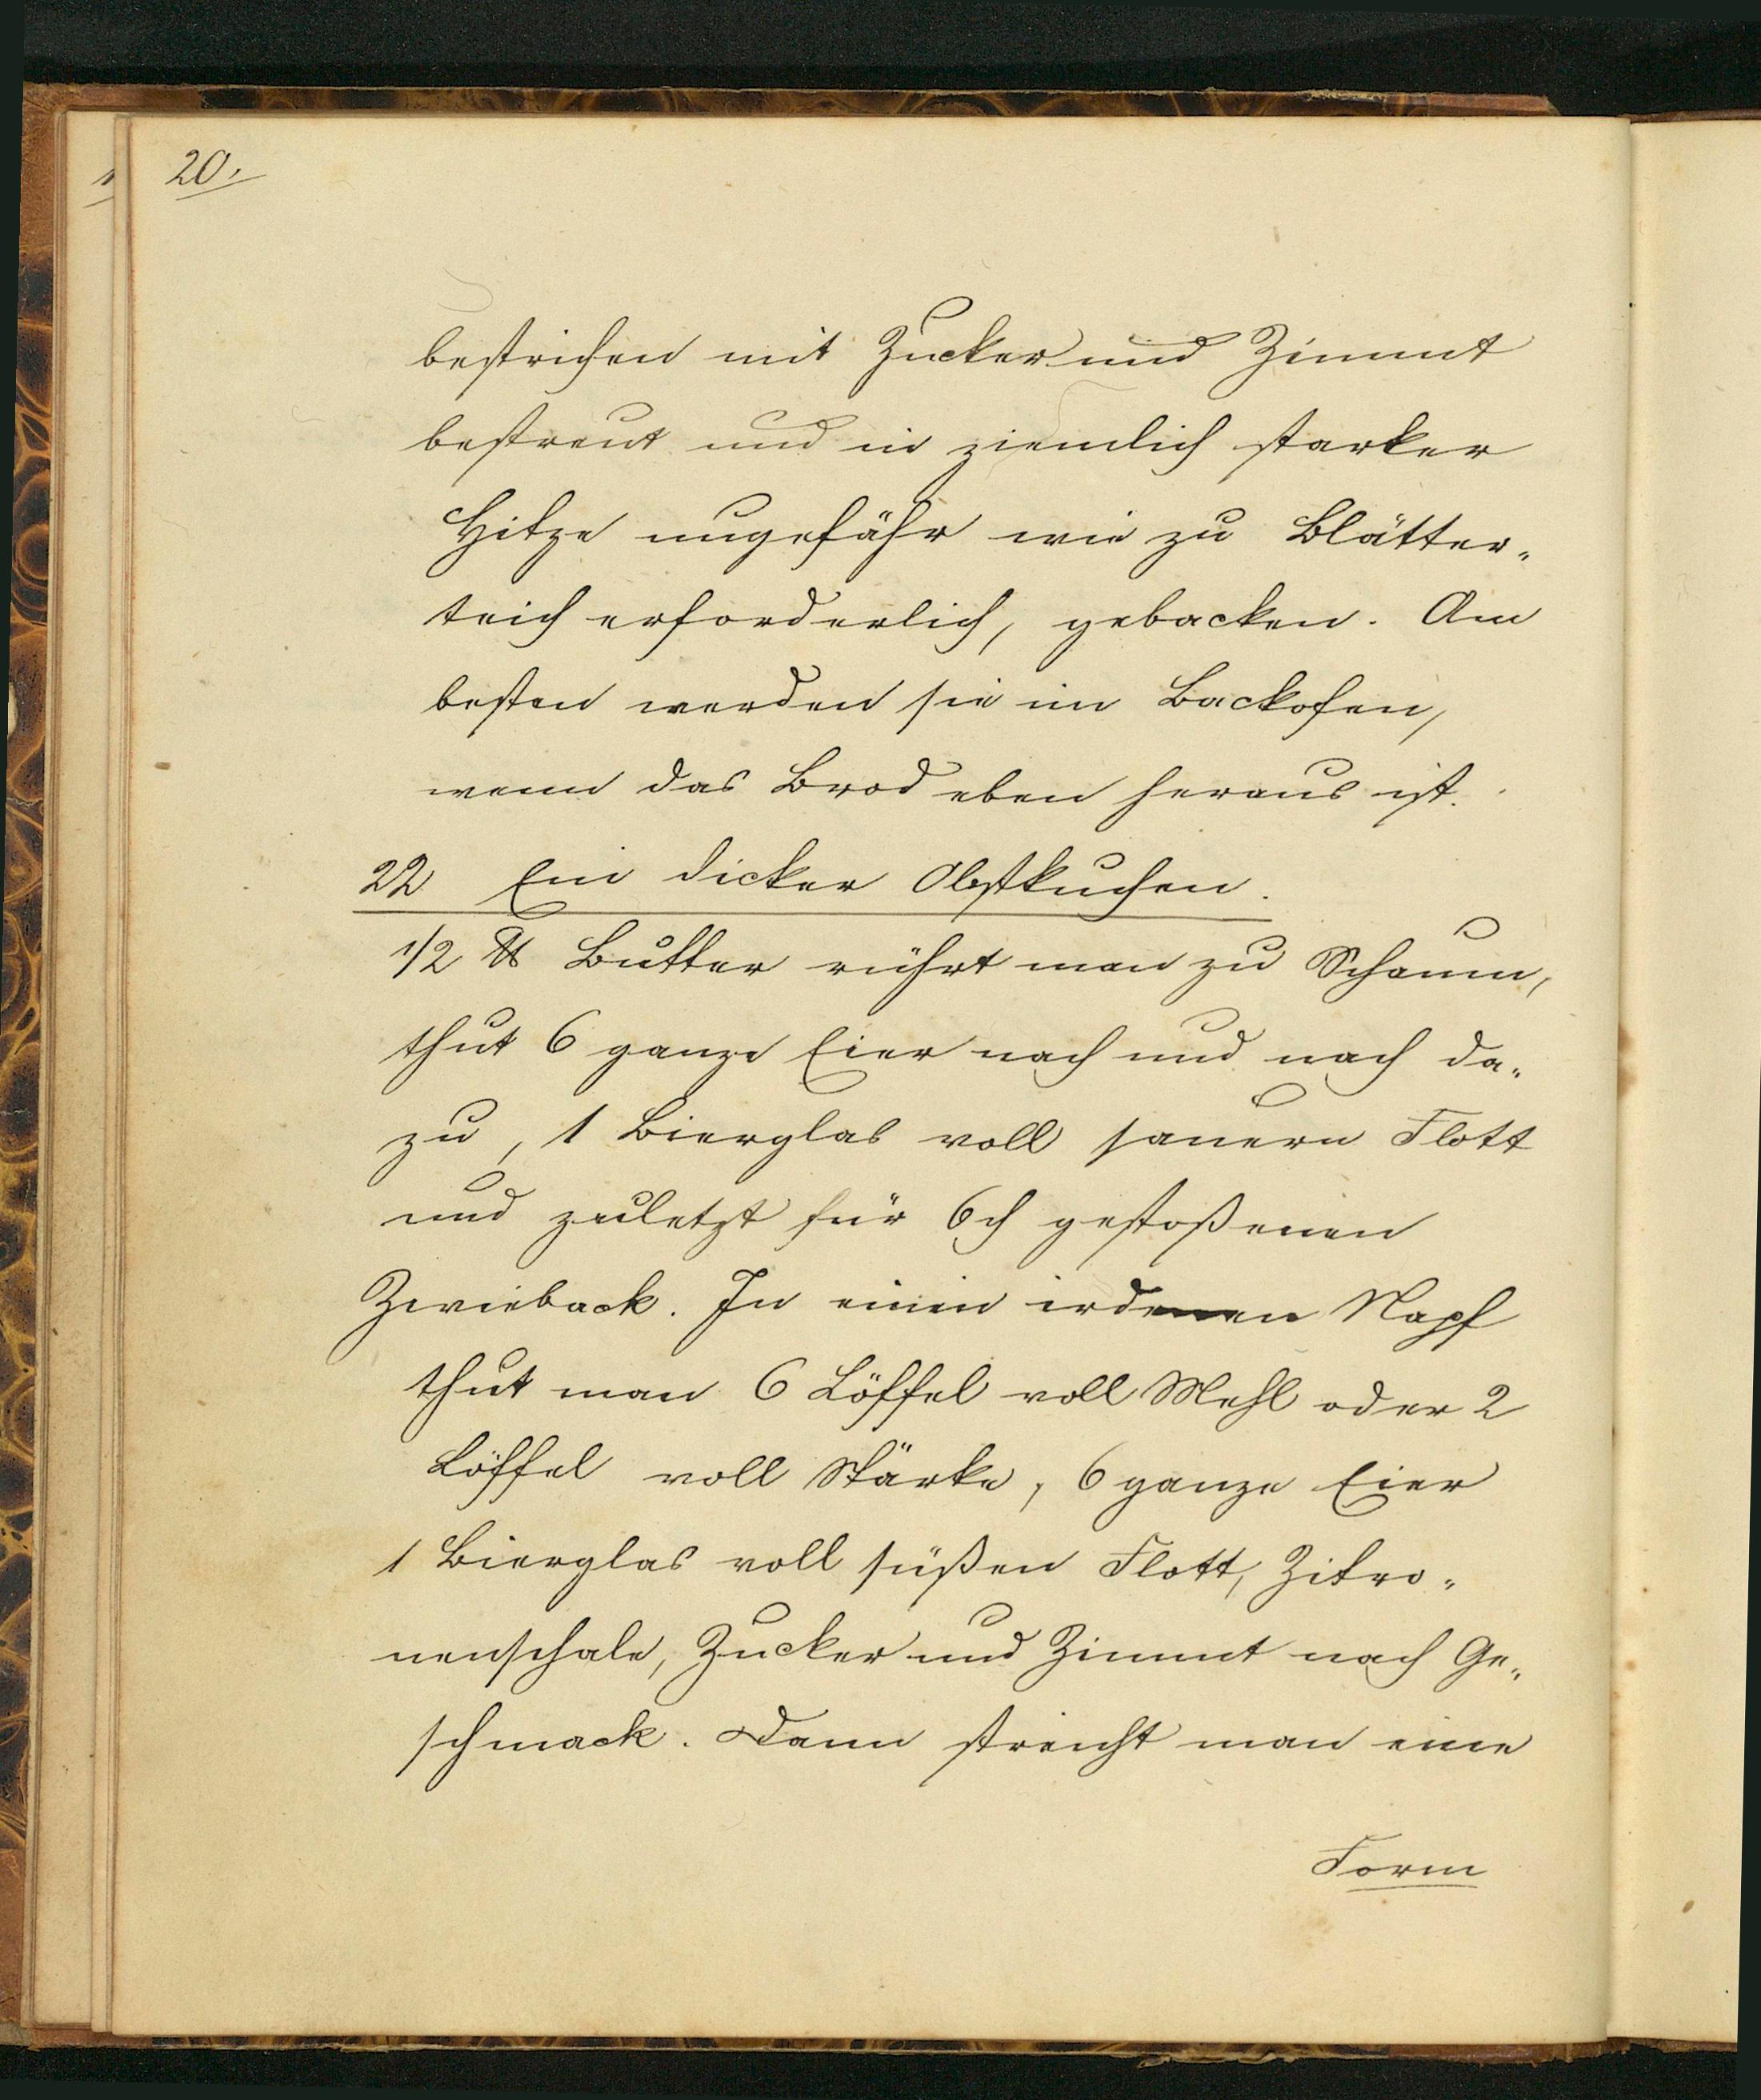 20.
bestrichen mit Zucker und Zimmt
bestreut und in ziemlich starker
Hitze ungefähr wie zu Blätter„
teich erforderlich, gebacken. Am
besten werden sie im Backofen,
wenn das Brod eben heraus ist.
22 Ein dicker Obstkuchen.
1/2 ℔ Butter rührt man zu Schaum,
thut 6 ganze Eier nach und nach da„
zu, 1 Bierglas voll sauern Flott
und zuletzt für 6 gestoßenen
Zwieback. In einen irdenen Napf
thut man 6 Löffel voll Mehl oder 2
Löffel voll Stärke, 6 ganze Eier
1 Bierglas voll süßen Flott, Zitro„
nenschale, Zucker und Zimmt nach Ge„
schmack. Dann streicht man eine
Form